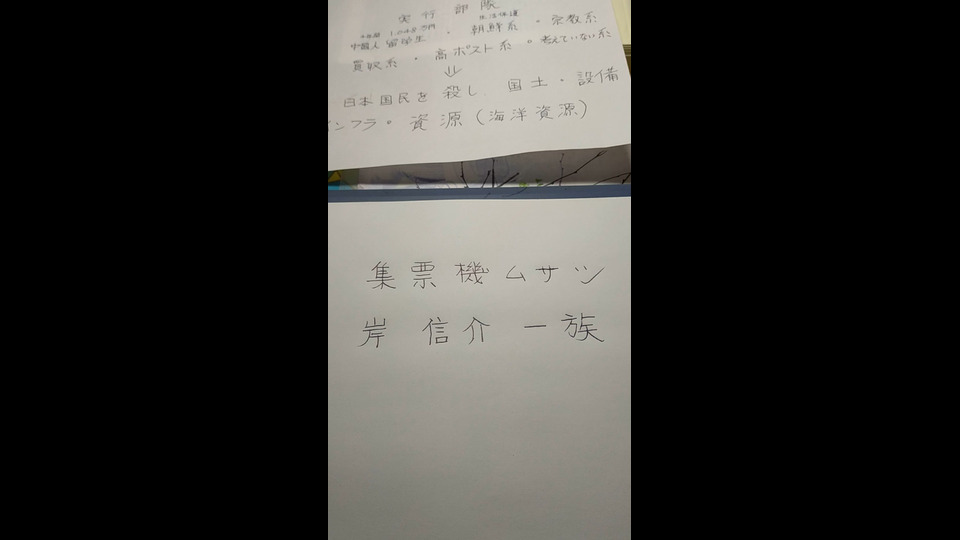 実行部隊
1,048万円 生活保護
中国人留学生・朝鮮系・宗教系
買奴系・高ポスト系・考えていない系
⇓
日本国民を殺し、国土・設備
ンフラ・資源(海洋資源)
集票機ムサツ
岸信介一族